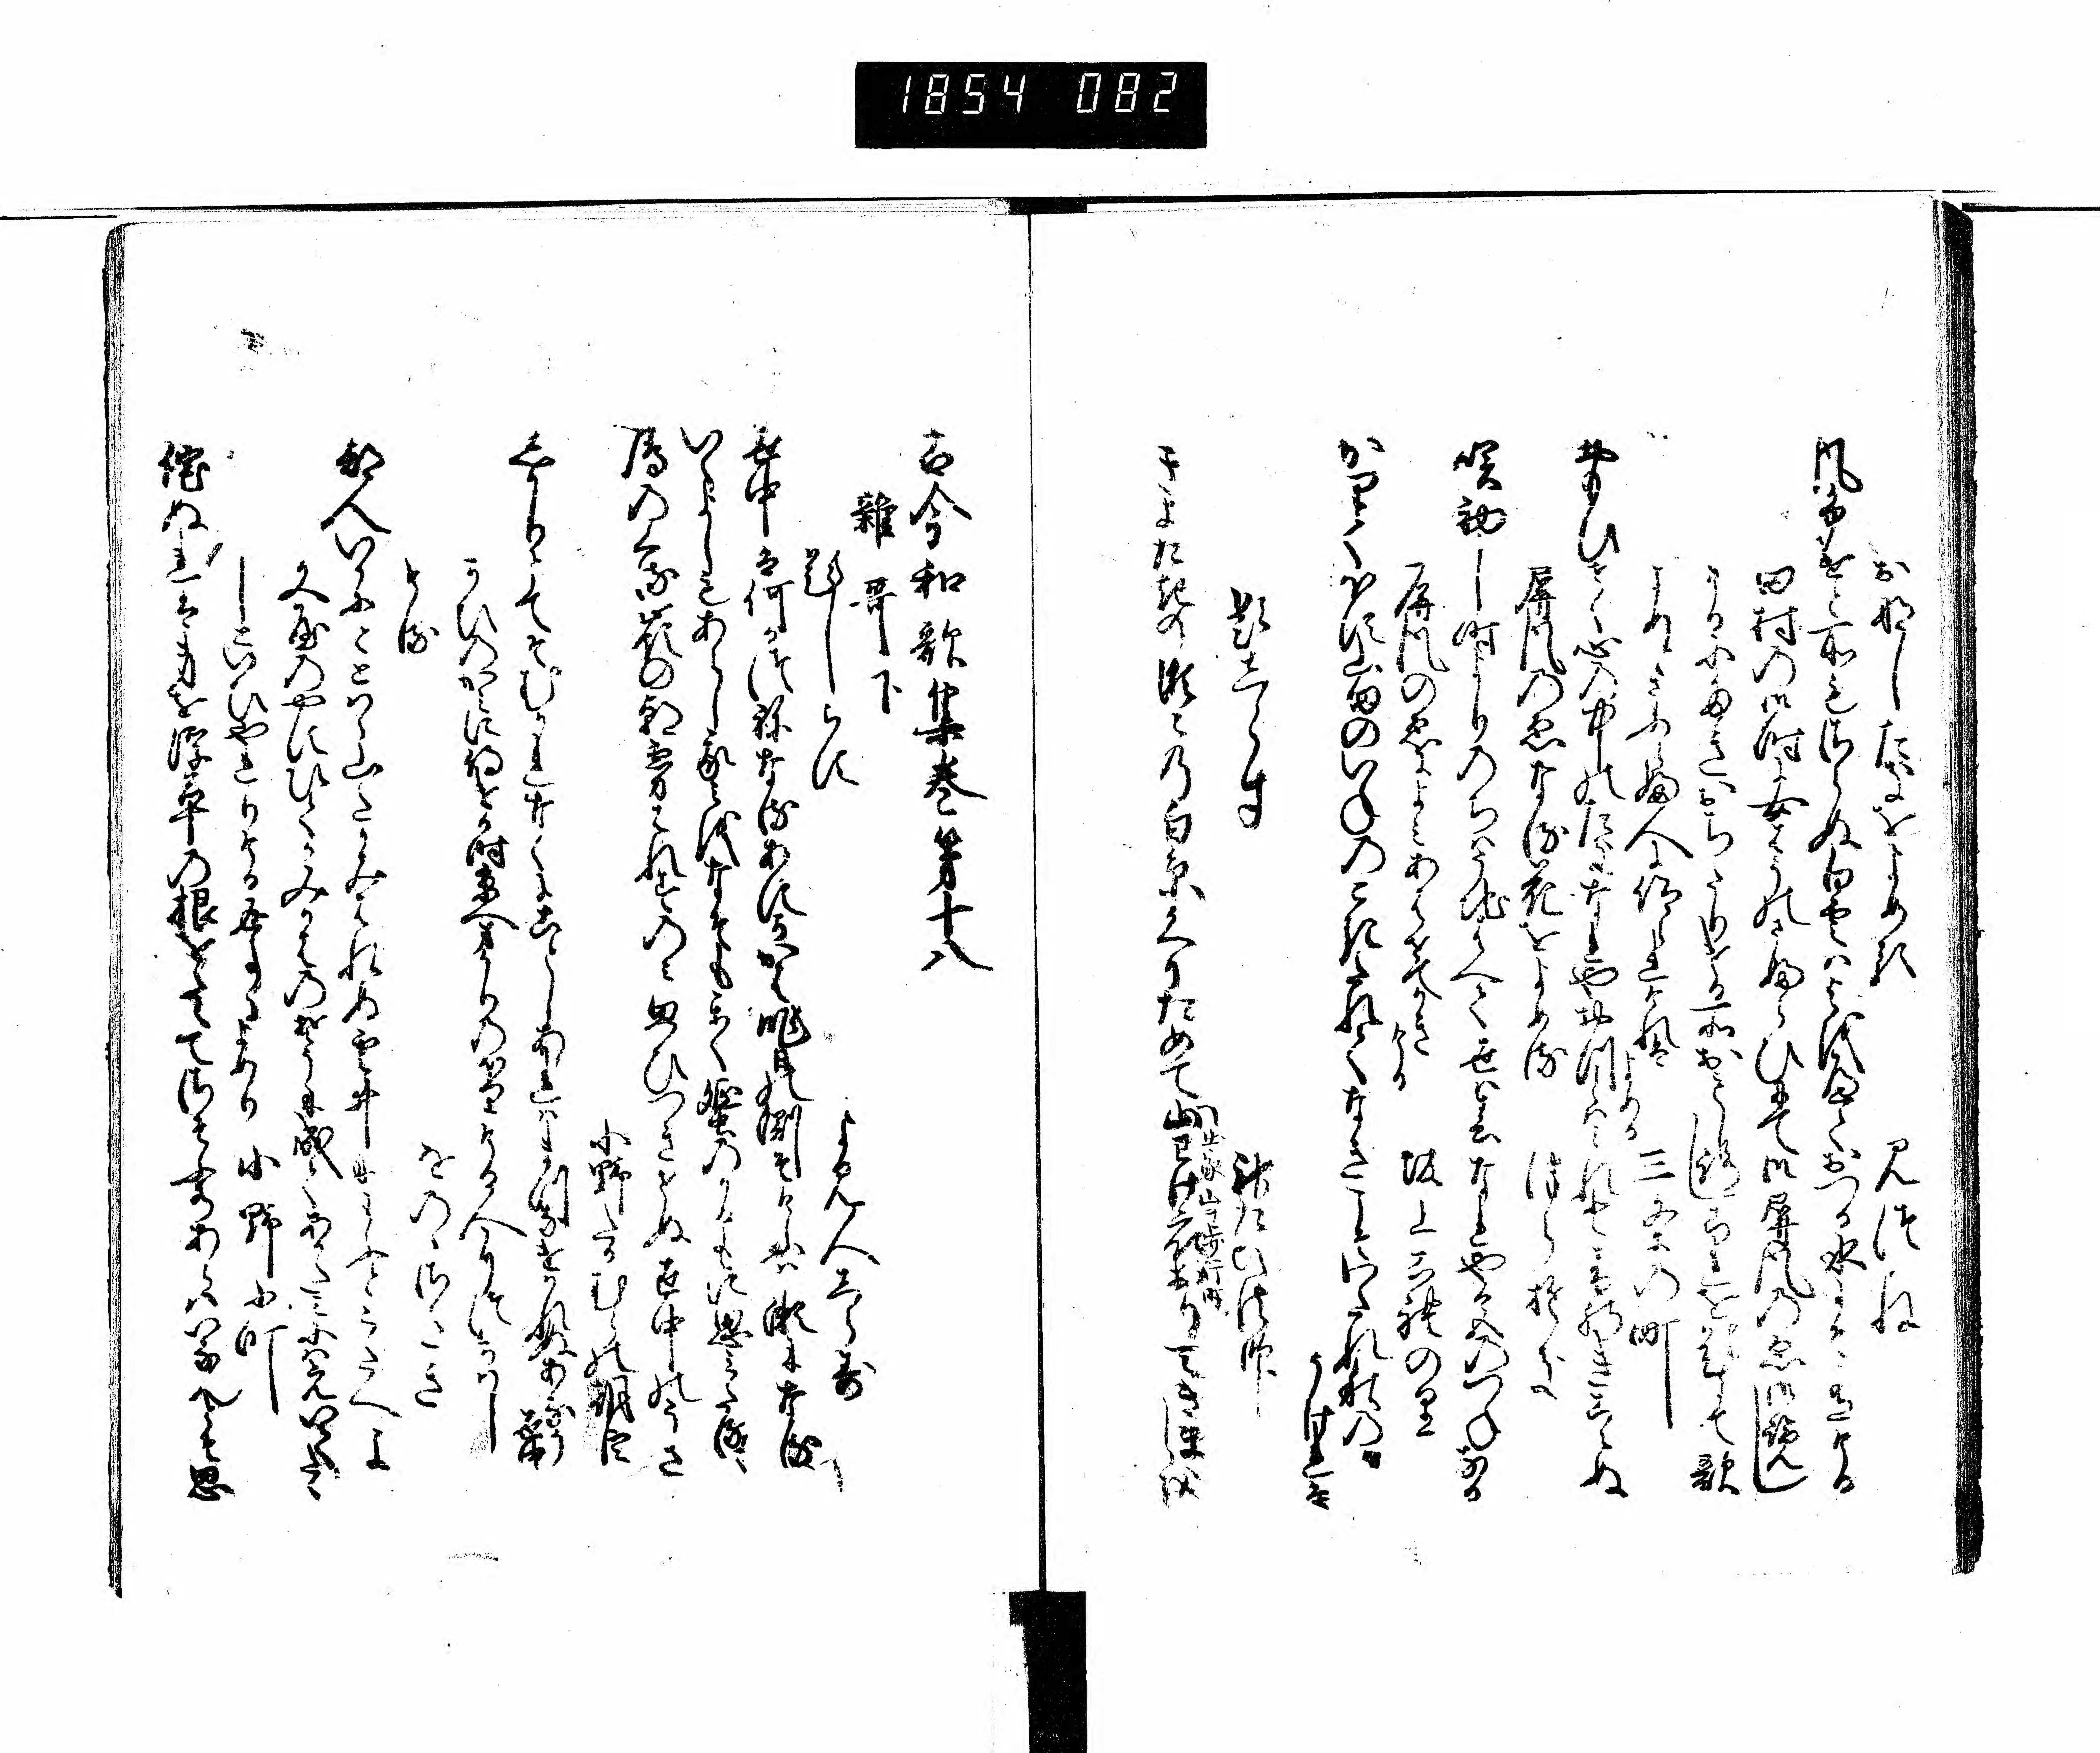 1854 082
おなしたきをよめる　みつね
風ふけと所もさらぬ白雲はよをへておつる水にそ有ける
田村の御時に女房のさふらひにて御屏風の絵御覧し
けるにたきおちたりける所おもしろし是を題にて歌
よめとさふらふ人に仰られけれはよめる　三条の町
おもひせく心の中の瀧なれやおつとはみれと音のきこえぬ
屏風の絵なる花をよめる　つらゆき
咲初し時よりのちはうちはへて世は春なれや色のつねなる
屏風の絵によみあはせてかきける　坂上是則
かりてほす山田のいねのこきたれてなきこそわたれ秋の
うけれは
題しらす　神たい法師
きよたきの瀬々の白糸くりためて山わけ衣おりてきましを
古今和歌集巻第十八
雑哥下
題しらす　よみ人しらす
世中は何か常なるあすか川昨日の淵そけふは瀬になる
いくよしもあらし我身をなそもかく蜑のかるもに思みたるゝ
鴈のくる峯の朝霧はれすのみ思ひつきせぬ世中のうさ
小野たかむらの朝臣
しかりとてそむかれなくに事しあれはまつ歎かれぬあなう世中
かひのかみに侍ける時京へまかりのほりける人につかはし
ける　をのゝさたき
都人いかにとゝはゝ山たかみはれぬ雲井にわふとこたへよ
文屋のやすひてみかはのそうに成てあかたみにはえいてたゝ
しやといひやれりける返事によめる　小野小町
侘ぬれは身を浮草の根をたえてさそふ水あらはいなんとそ思